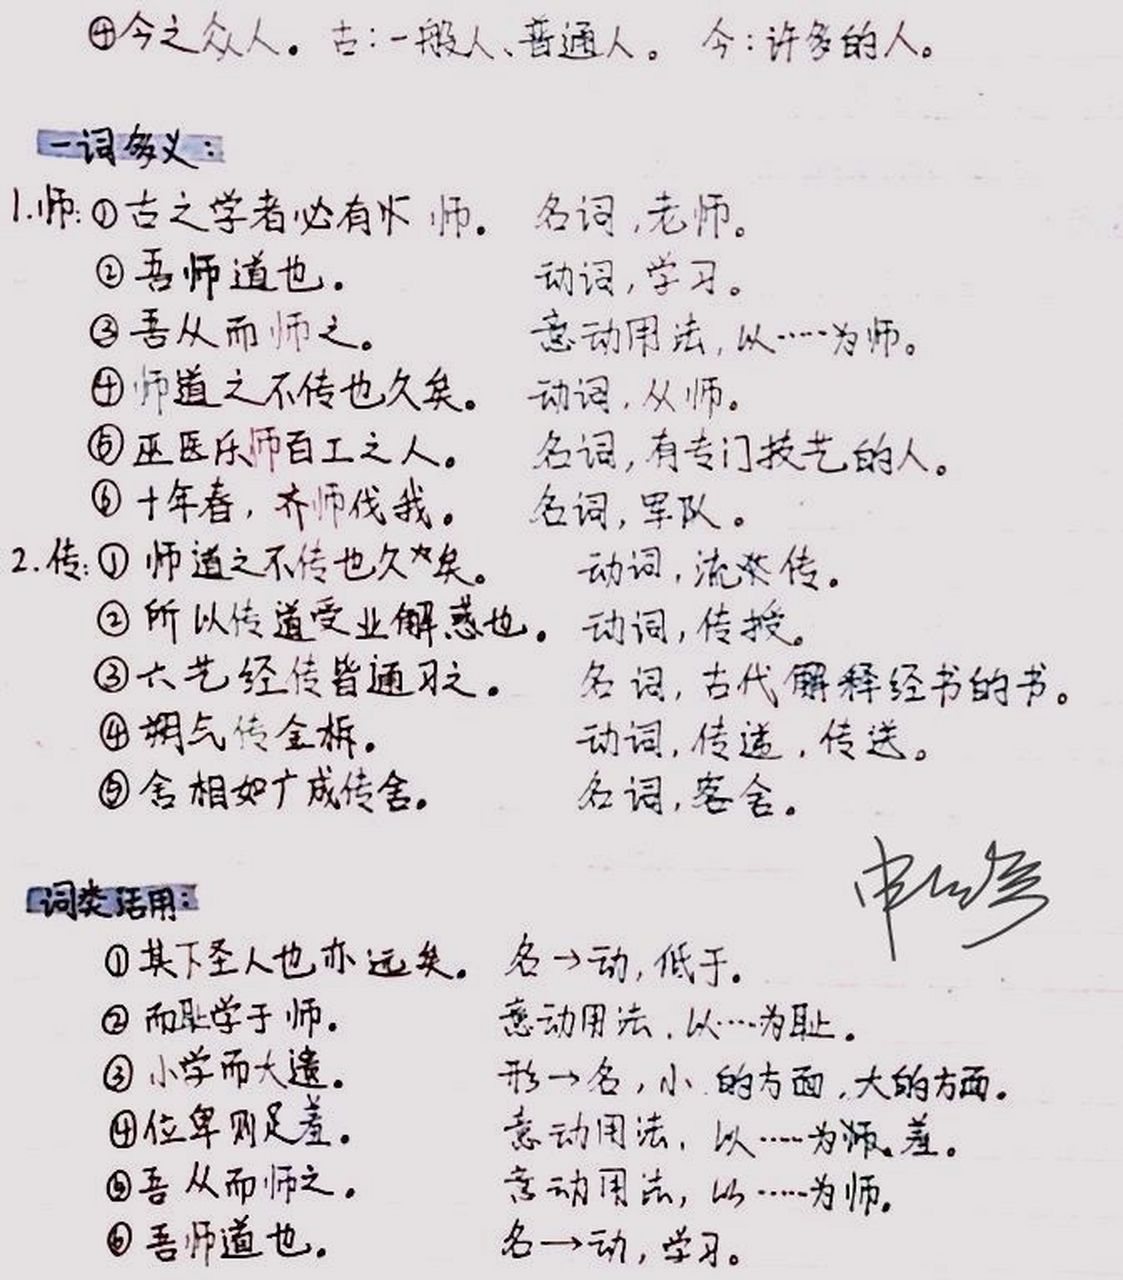 ④今之众人。古：一般人、普通人。 今：许多的人。
一词多义：
1.师：①古之学者必有师。 名词，老师。
②吾师道也。 动词，学习。
③吾从而师之。 意动用法，以……为师。
④师道之不传也久矣。 动词，从师。
⑤巫医乐师百工之人。 名词，有专门技艺的人。
⑥十年春，齐师伐我。 名词，军队。
2.传：①师道之不传也久矣。 动词，流传。
②所以传道受业解惑也。 动词，传授。
③六艺经传皆通习之。 名词，古代解释经书的书。
④朔气传金柝。 动词，传递，传送。
⑤舍相如广成传舍。 名词，客舍。
词类活用：
①其下圣人也亦远矣。 名→动，低于。
②而耻学于师。 意动用法，以……为耻。
③小学而大遗。 形→名，小的方面，大的方面。
④位卑则足羞。 意动用法，以……为羞。
⑤吾从而师之。 意动用法，以……为师。
⑥吾师道也。 名→动，学习。